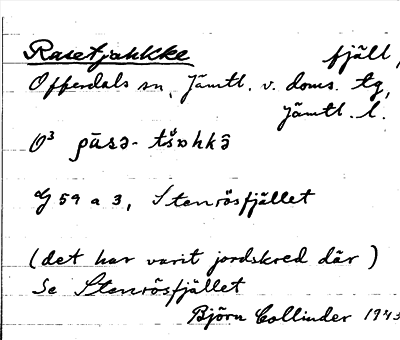 Rasetjahkke fjäll,
Offerdals sn, Jämtl. v. doms. tg,
Jämtl. l.
O³ ρāsə- tš́ɒhkə̂
G 59 a 3, Stenrösfjället
(det har varit jordskred där)
Se Stenrösfjället
Björn Collinder 1943